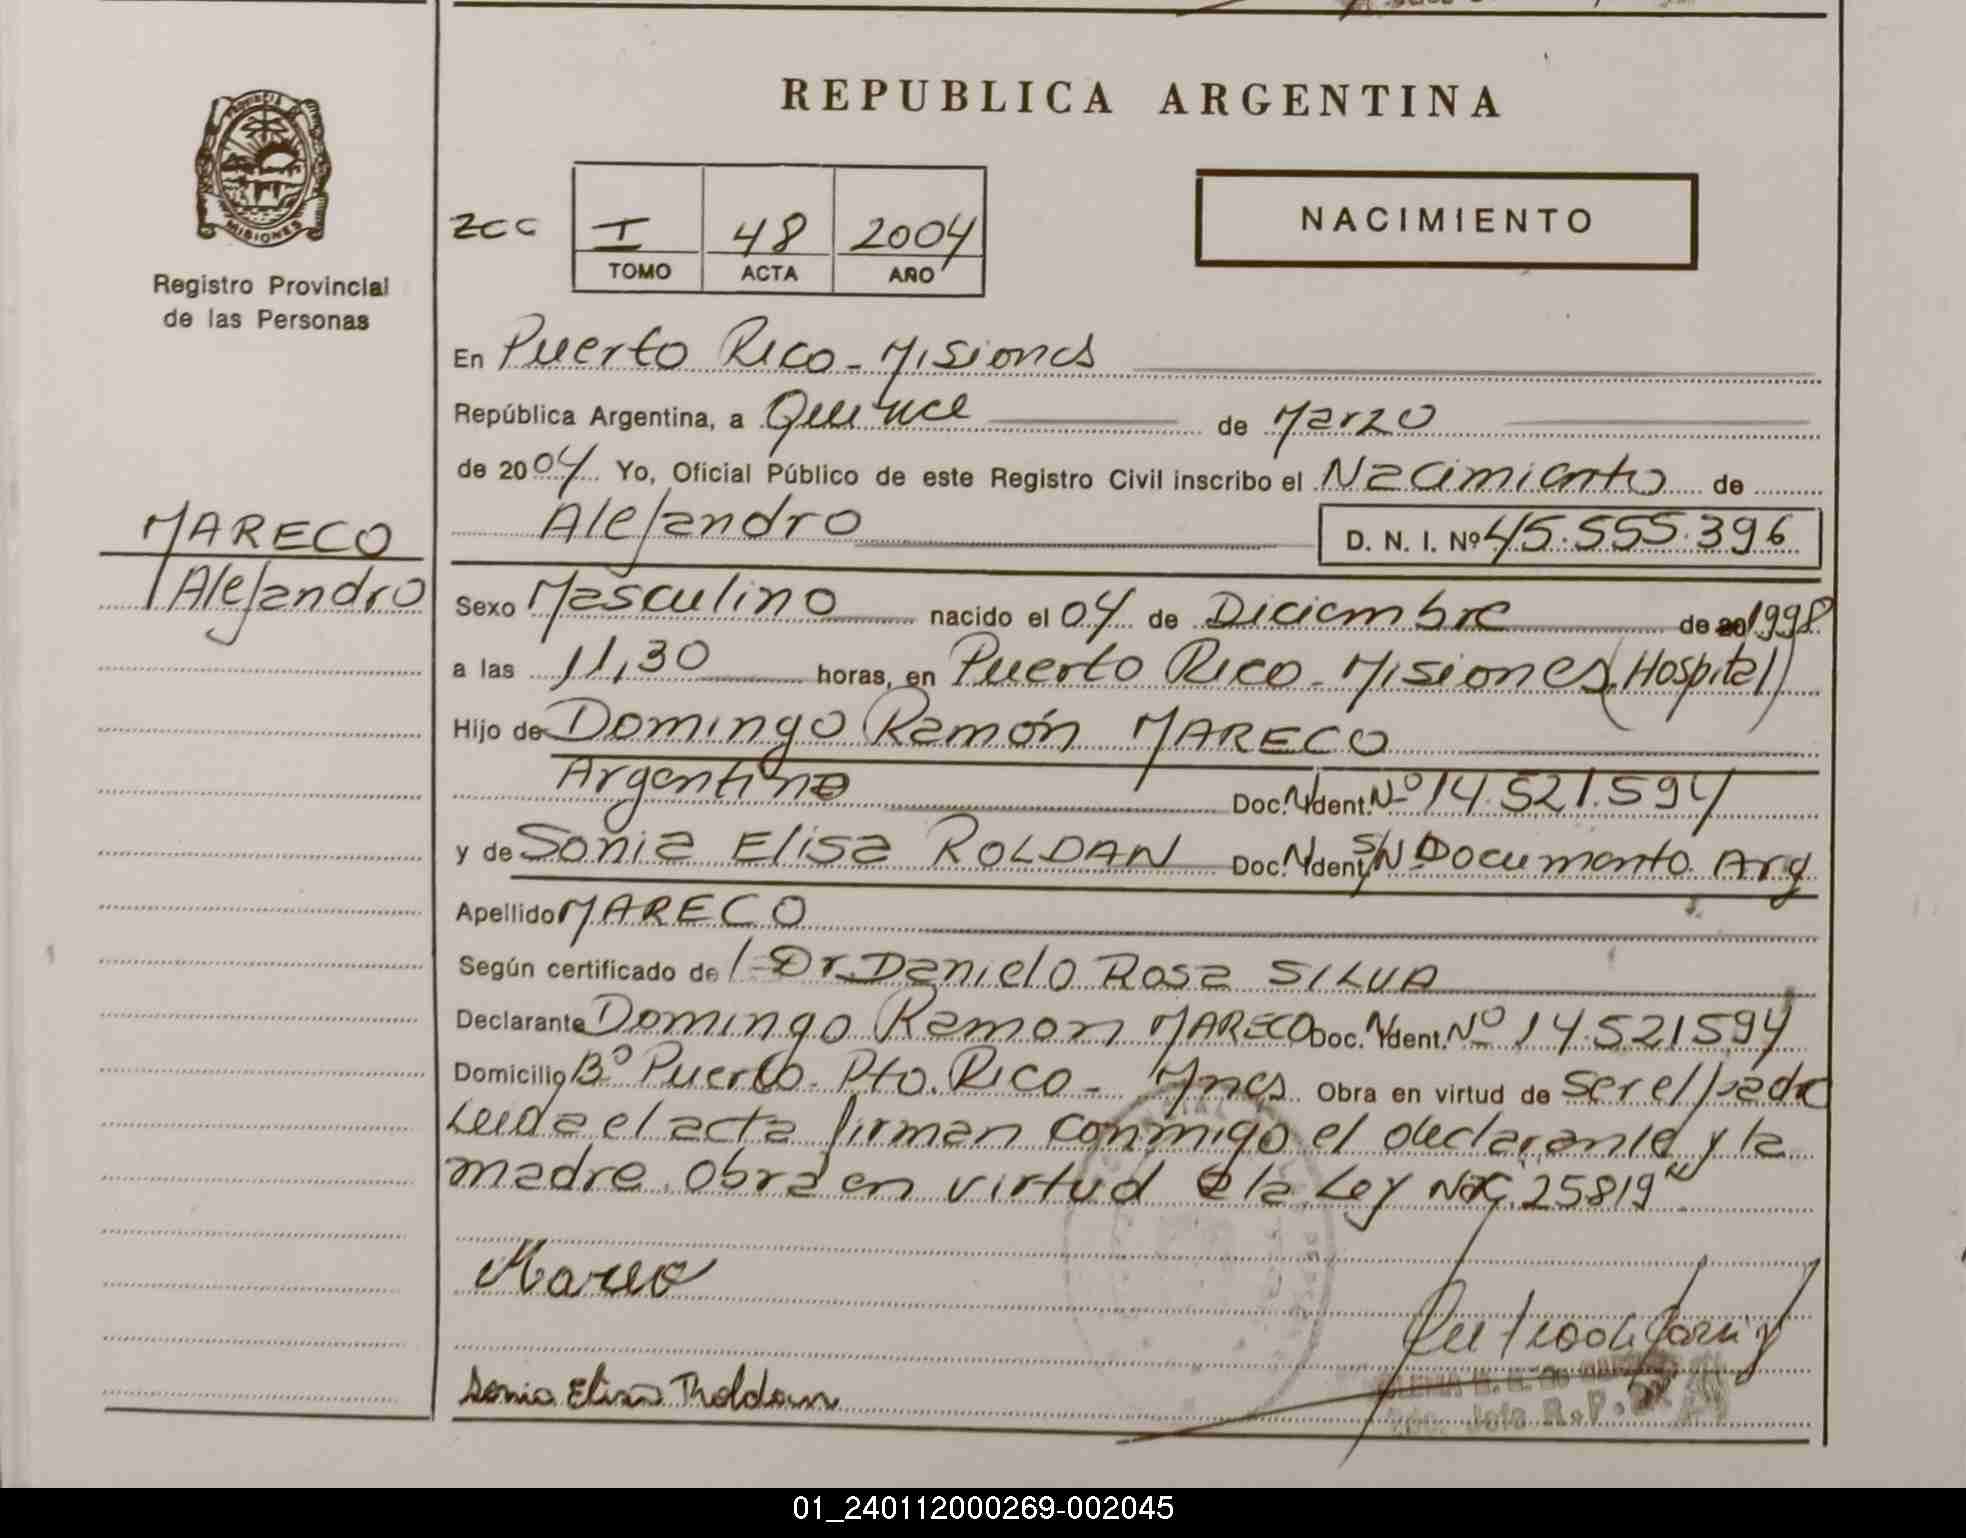 REPUBLICA ARGENTINA
PROVINCIA DE
MISIONES
Registro Provincial
de las Personas
MARECO
Alejandro
zcc I 48 2004
TOMO ACTA AÑO
NACIMIENTO
En Puerto Rico - Misiones
República Argentina, a Quince de Marzo
de 2004 Yo, Oficial Público de este Registro Civil inscribo el Nacimiento de
Alejandro D. N. I. Nº 45.555.396
Sexo Masculino nacido el 04 de Diciembre de 20 1998
a las 11,30 horas, en Puerto Rico - Misiones (Hospital)
Hijo de Domingo Ramón MARECO
Argentino Doc. N. Ident. Nº 14.521.594
y de Sonia Elisa ROLDAN Doc. N. Ident. S/N Documento Arg
Apellido MARECO
Según certificado de l Dr. Danielo Rosa SILVA
Declarante Domingo Ramon MARECO Doc. N. Ident. Nº 14.521594
Domicilio Bº Puerto - Pto. Rico - Mnes Obra en virtud de ser el padre
Leida el acta firman conmigo el declarante y la
madre. Obra en virtud a la Ley Nac. 25819
Mareco
Sonia Elisa Rholdan
2do. Jefe R. P.
01_240112000269-002045